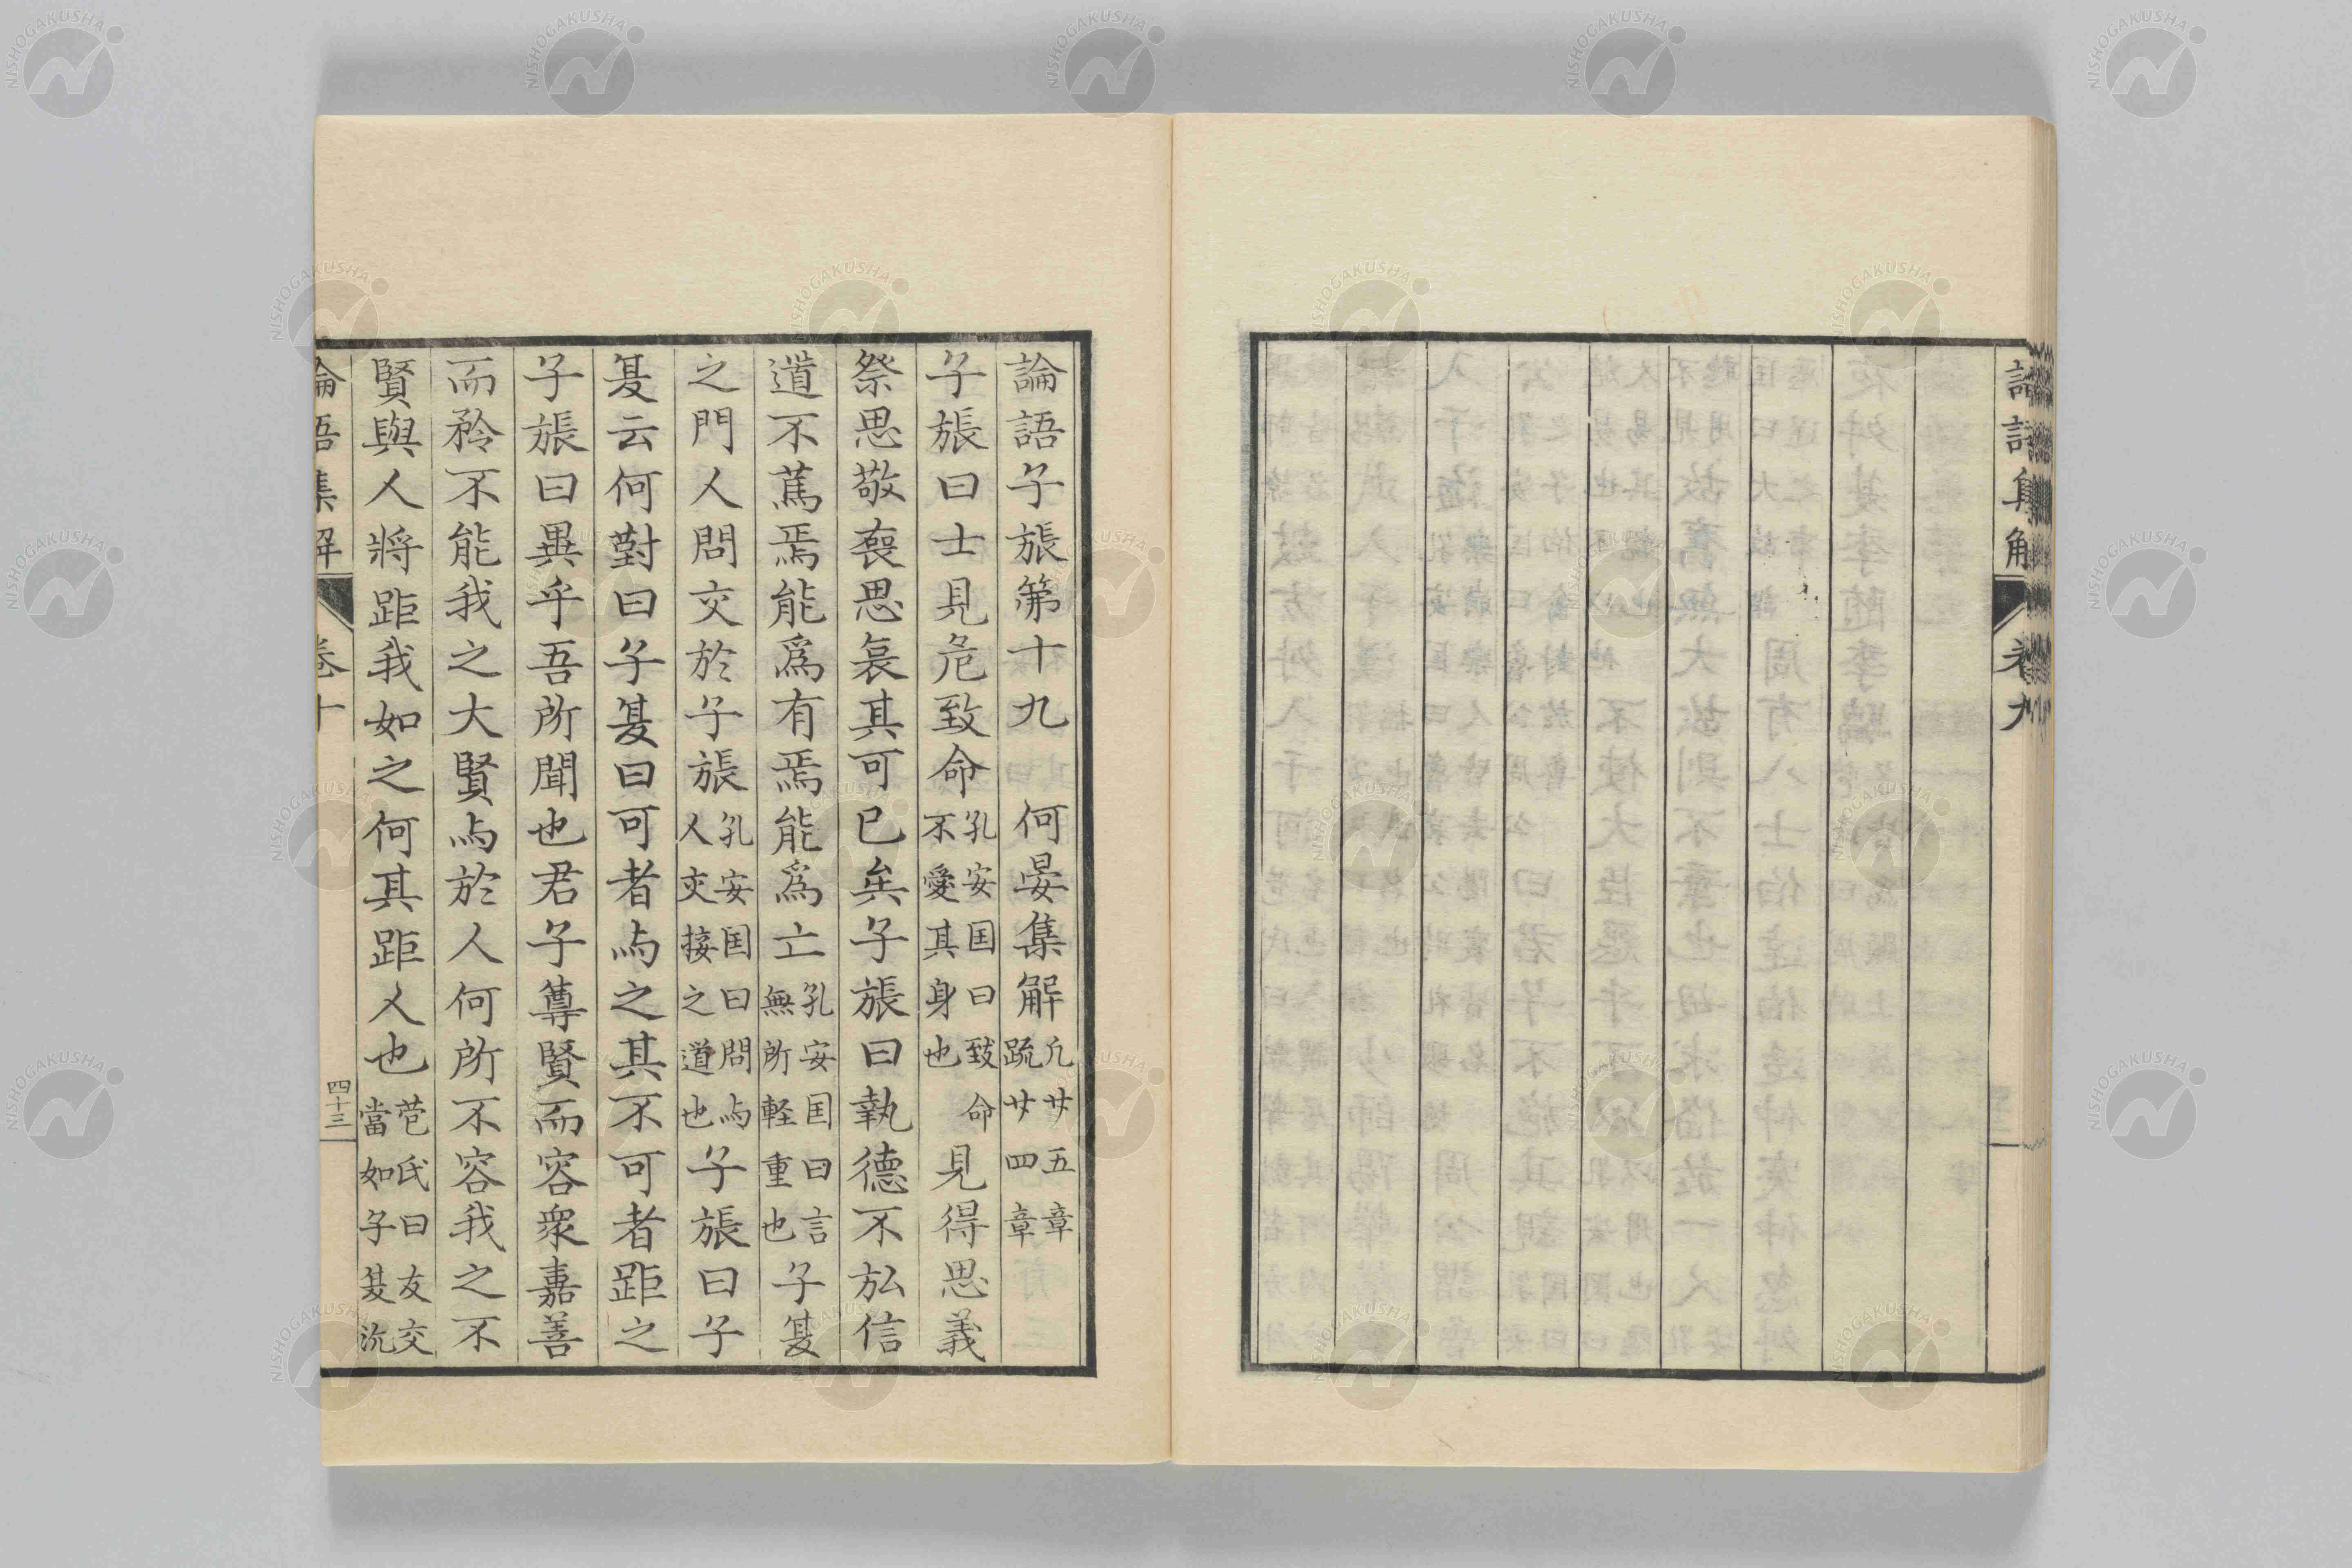 論語集解 卷九
論語子張第十九 何晏集解 凡廿五章 疏廿四章
子張曰士見危致命 孔安国曰致命 不愛其身也 見得思義
祭思敬喪思哀其可已矣子張曰執德不弘信
道不篤焉能爲有焉能爲亡 孔安国曰言 無所輕重也 子夏
之門人問交於子張 孔安国曰問与 人交接之道也 子張曰子
夏云何對曰子夏曰可者与之其不可者距之
子張曰異乎吾所聞也君子尊賢而容衆嘉善
而矜不能我之大賢与於人何所不容我之不
賢與人將距我如之何其距人也 苞氏曰友交 當如子夏汎
論語集解 卷十 四十三
NISHOGAKUSHA